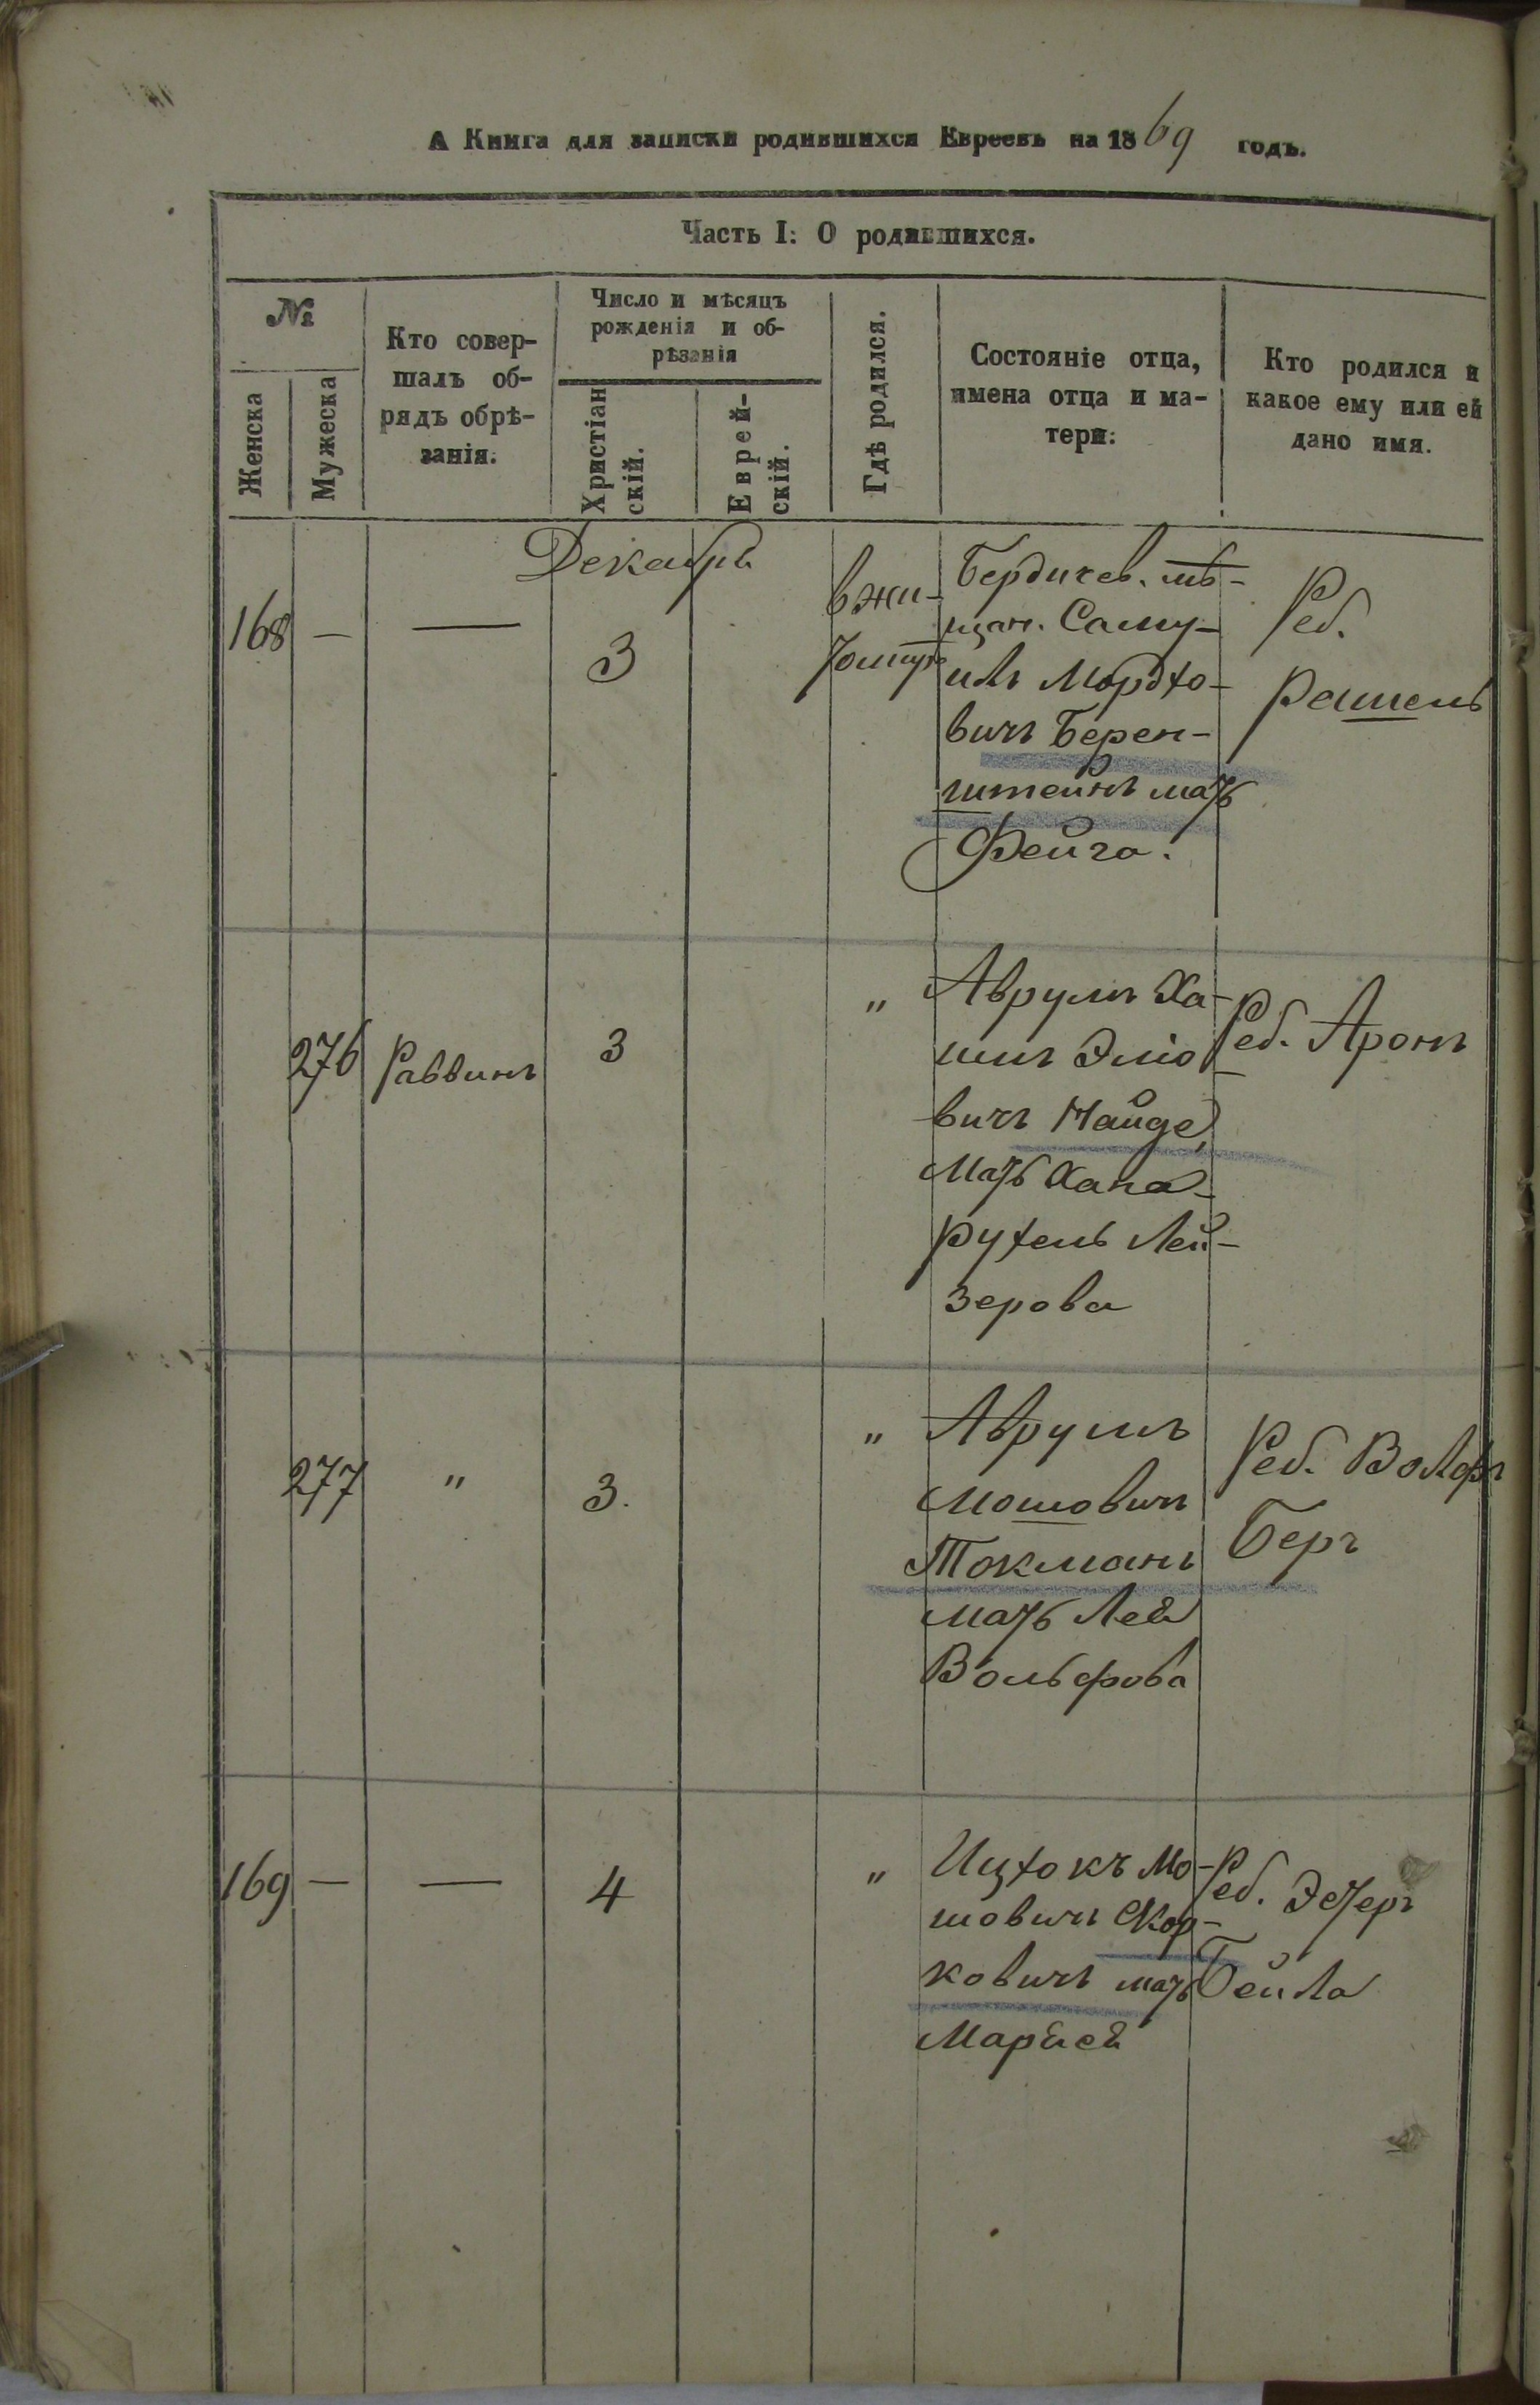 А Книга для записки родившихся Евреевъ на 1869 годъ.
Часть I: О родившихся.
№
Женска
Мужеска
Кто совер-
шалъ об-
рядъ обрѣ-
занія.
Число и мѣсяцъ
рожденія и об-
рѣзанія
Христіан
скій.
Еврей-
скій.
Гдѣ родился.
Состояніе отца,
имена отца и ма-
тери.
Кто родился и
какое ему или ей
дано имя.
Декабрь
168 — — 3
в жи-
томирѣ
Бердичев. мѣ-
щан. Саму-
илъ Мордхо-
вичъ Берен-
штейнъ мать
Фейга.
Реб.
Рашель
276 Раввинъ 3 "
Аврумъ Ха-
имъ Эліо-
вичъ Найде,
мать Хана-
Рухель Лей-
зерова
Реб. Аронъ
277 " 3. "
Аврумъ
Мошовичъ
Токманъ
мать Лея
Вольфова
Реб. Волфъ
Беръ
169 — — 4 "
Ицхокъ Мо-
шовичъ Скор-
ковичъ мать
Реб. Эстеръ
Бейла